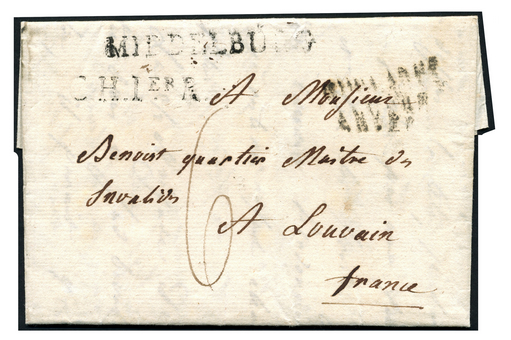 MIDDELBURG
C.H.1ER.A.
HOLLANDE
PAR
ANVERS
A Monsieur
Benoist quartier Maitre des
Invalides
6
A Louvain
france